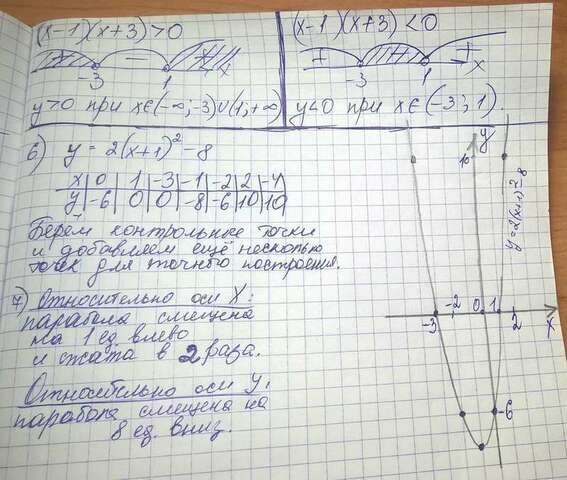 (x-1)(x+3)>0
+ - +
-3 1 x
y>0 при x∈(-∞;-3)∪(1;+∞)
(x-1)(x+3)<0
+ - +
-3 1 x
y<0 при x∈(-3;1).
6) y = 2(x+1)² - 8
x | 0 | 1 | -3 | -1 | -2 | 2 | -4
y | -6 | 0 | 0 | -8 | -6 | 10 | 10
Берём контрольные точки
и добавляем ещё несколько
точек для точного построения.
7) Относительно оси X:
парабола смещена
на 1 ед. влево
и сжата в 2 раза.
Относительно оси y:
парабола смещена на
8 ед. вниз.
y
10
y=2(x+1)²-8
-3 -2 0 1 2 x
-6